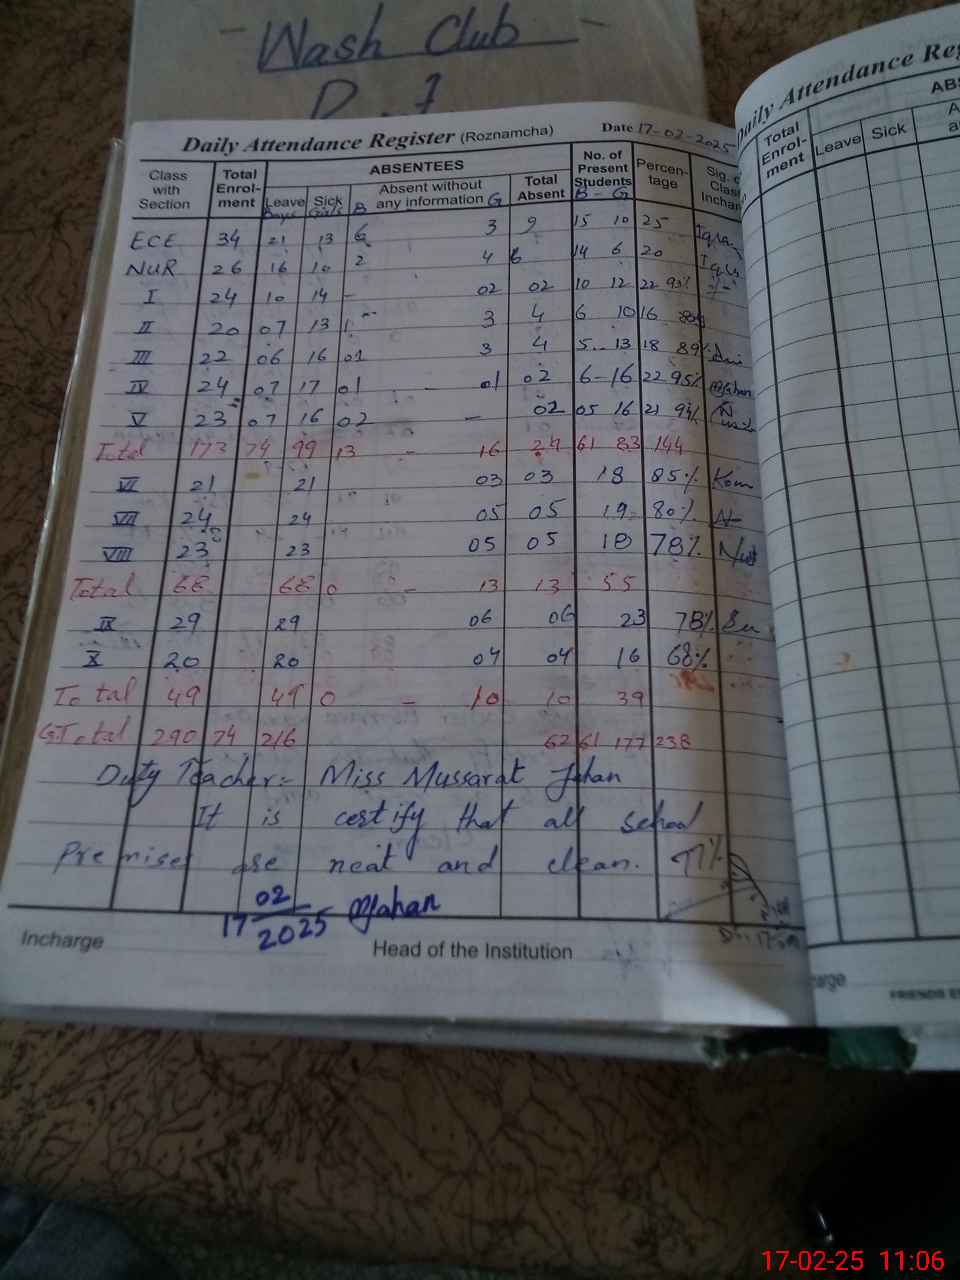 Wash Club
Daily Attendance Register (Roznamcha) Date 17-02-2025
Class with Section Total Enrol-ment ABSENTEES Leave Sick Absent without any information Total Absent No. of Present Students Percen-tage Sig. of Class Inchar
Boys Girls B G B - G
ECE 34 21 13 6 3 9 15 10 25 Iqra
NUR 26 16 10 2 4 6 14 6 20 Iqra
I 24 10 14 - 02 02 10 12 22 93%
II 20 07 13 1 3 4 6 10 16 80%
III 22 06 16 01 3 4 5 - 13 18 89%
IV 24 07 17 01 - 01 02 6 - 16 22 95% Jahan
V 23 07 16 02 - 02 05 16 21 94%
Total 173 74 99 13 - 16 29 61 83 144
VI 21 21 03 03 18 85% Kom
VII 24 24 05 05 19 80% N
VIII 23 23 05 05 18 78%
Total 68 68 0 - 13 13 55
IX 29 29 06 06 23 78%
X 20 20 04 04 16 68%
Total 49 49 0 - 10 10 39
G.Total 290 74 216 62 61 177 238
Duty Teacher:- Miss Mussarat Jahan
It is certify that all school
Premises are neat and clean. 77%
17 02 2025 Jahan
Incharge Head of the Institution
Daily Attendance Reg
Total Enrol-ment Leave Sick
FRIENDS
17-02-25 11:06